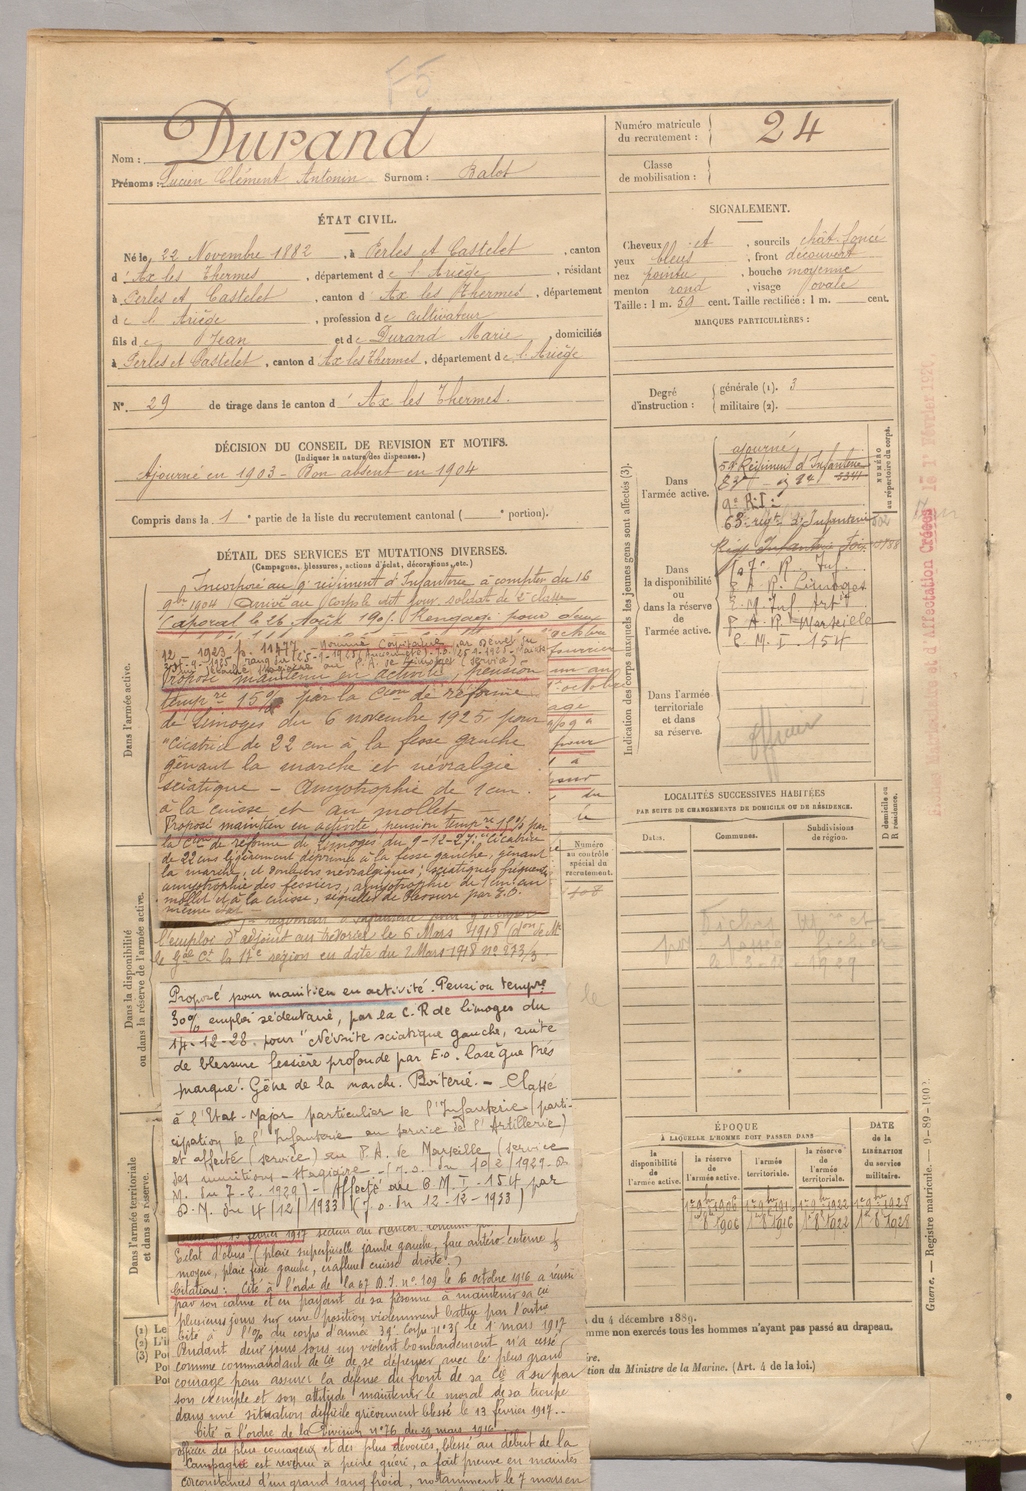 F5
Nom : Durand
Prénoms : Lucien Clément Antonin Surnom : Balot
Numéro matricule du recrutement : 24
Classe de mobilisation :
ÉTAT CIVIL.
Né le 22 Novembre 1882, à Perles et Castelet, canton
d'Ax les Thermes, département de l'Ariège, résidant
à Perles et Castelet, canton d'Ax les Thermes, département
de l'Ariège, profession de cultivateur
fils de Jean et de Durand Marie, domiciliés
à Perles et Castelet, canton d'Ax les Thermes, département de l'Ariège
N° 29 de tirage dans le canton d'Ax les Thermes.
SIGNALEMENT.
Cheveux et, sourcils chât. foncé
yeux bleus, front découvert
nez pointu, bouche moyenne
menton rond, visage ovale
Taille : 1 m. 59 cent. Taille rectifiée : 1 m. cent.
MARQUES PARTICULIÈRES :
Degré d'instruction : générale (1). 3
militaire (2).
DÉCISION DU CONSEIL DE REVISION ET MOTIFS.
(Indiquer la nature des dispenses.)
Ajourné en 1903 – Bon absent en 1904
Compris dans la 1e partie de la liste du recrutement cantonal ( e portion).
DÉTAIL DES SERVICES ET MUTATIONS DIVERSES.
(Campagnes, blessures, actions d'éclat, décorations, etc.)
Incorporé au 9e régiment d'Infanterie à compter du 16
9bre 1904 Arrivé au Corps le dit jour, soldat de 2e classe
Caporal le 26 Août 1905. Rengagé pour deux
12 - 1923 p. 11977
Proposé maintien en activité, pension
tempre 15% par la Cion de réforme
de Limoges du 6 novembre 1925 pour
"Cicatrice de 22 cm à la fesse gauche
gênant la marche et névralgie
sciatique – Amyotrophie de 1 cm.
à la cuisse et au mollet –
Proposé maintien en activité, pension tempre 15% par
la Cion de réforme de Limoges du 9-12-27: "Cicatrice
de 22 cms légèrement déprimée à la fesse gauche, gênant
la marche, et douleurs névralgiques, sciatiques fréquentes
amyotrophie des fessiers, amyotrophie de 1 cm au
mollet et à la cuisse, séquelles de blessure par E.O.
même état
l'emploi d'adjoint au trésorier le 6 Mars 1918 (don de Mr
le Gal Ct la 17e région en date du 2 Mars 1918 no 273/3
Proposé pour manitien en activité. Pension tempre
30% emploi sédentaire, par la C.R de limoges du
14-12-28. pour "Névrite sciatique gauche, suite
de blessure fessière profonde par E.O. lasègue très
marqué. Gêne de la marche. Boiterie. – Classé
à l'Etat-Major particulier de l'Infanterie (parti-
cipation de l'Infanterie au service de l'Artillerie)
et affecté (service) au P.A. de Marseille (service
des munitions – Stagiaire – (J.O. du 10/2/1929 – D.
M. du 7-2-1929) – Affecté au C.M.I – 154 par
D.M. du 4/12/1933 (J.O. du 12-12-1933)
Eclat d'obus (plaie superficielle jambe gauche, face antéro externe
moyen, plaie fesse gauche, éraflure cuisse droite.)
Citations : Cité à l'ordre de la 67 D.I. no 109 le 6 octobre 1916 a réussi
par son calme et en payant de sa personne à maintenir sa Cie
plusieurs jours sur une position violemment battue par l'artie
Cité à l'O/ du corps d'armée 39e Corps no 35 le 1 mars 1917
Pendant deux jours sous un violent bombardement, n'a cessé
comme commandant de Cie de se dépenser avec le plus grand
courage pour assurer la défense du front de sa Cie a su par
son exemple et son attitude maintenir le moral de sa troupe
dans une situation difficile grièvement blessé le 13 février 1917.
Cité à l'ordre de la Division no 76 du 29 mars 1916
officier des plus courageux et des plus dévoués, blessé au début de la
Campagne est revenu à peine guéri, a fait preuve en maintes
circonstances d'un grand sang froid, notamment le 7 mars en
Dans l'armée active.
Dans la disponibilité ou dans la réserve de l'armée active.
Dans l'armée territoriale et dans sa réserve.
Indication des corps auxquels les jeunes gens sont affectés (3).
NUMÉRO au répertoire du corps.
Dans l'armée active.
ajourné
59 Régiment d'Infanterie
9e R.I.
63e régt d'Infanterie
Dans la disponibilité ou dans la réserve de l'armée active.
107e R. Inf.
P.A.R. Limoges
E.M. Inf. Artie
P.A.R. Marseille
C.M.I – 154
Dans l'armée territoriale et dans sa réserve.
officier
Numéro au contrôle spécial du recrutement.
LOCALITÉS SUCCESSIVES HABITÉES
PAR SUITE DE CHANGEMENTS DE DOMICILE OU DE RÉSIDENCE.
Dates.
Communes.
Subdivisions de région.
D domicile ou R résidence.
1929
ÉPOQUE
À LAQUELLE L'HOMME DOIT PASSER DANS
la disponibilité de l'armée active.
la réserve de l'armée active.
l'armée territoriale.
la réserve de l'armée territoriale.
DATE de la LIBÉRATION du service militaire.
1er 8bre 1906
1er 8bre 1916
1er 8bre 1922
1er 8bre 1928
du 4 décembre 1889.
mme non exercés tous les hommes n'ayant pas passé au drapeau.
tion du Ministre de la Marine. (Art. 4 de la loi.)
(1) Le
(2) L'i
(3) Po
Po
Po
Guerre. — Registre matricule. — 9-89-190
Matriculaire et d'Affectation Créées le 1er Février 19